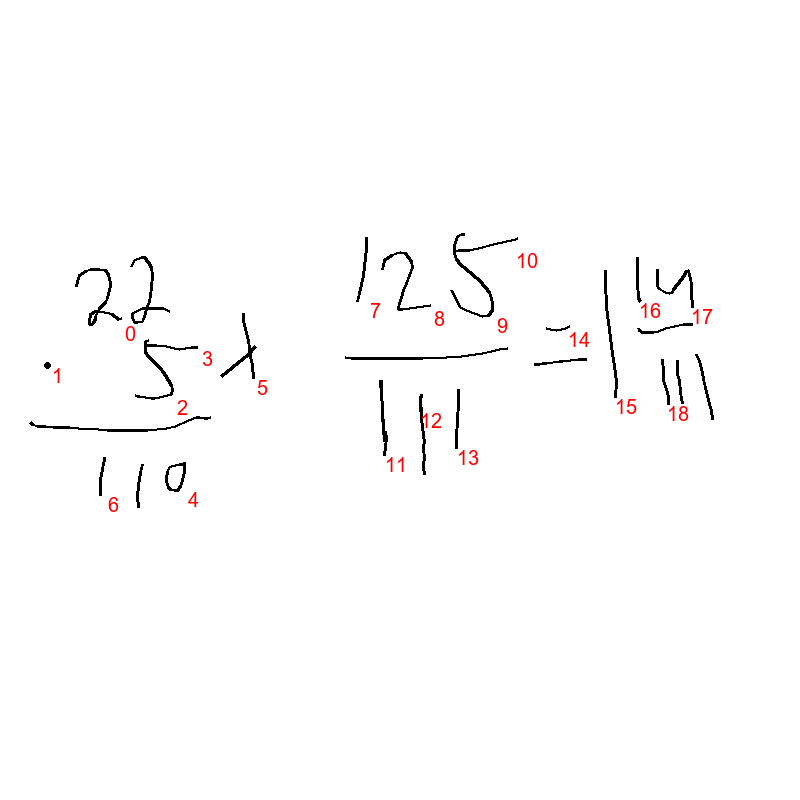 22
· 5 x
110
125/111 = 1 14/111
0 1 2 3 4 5 6 7 8 9 10 11 12 13 14 15 16 17 18